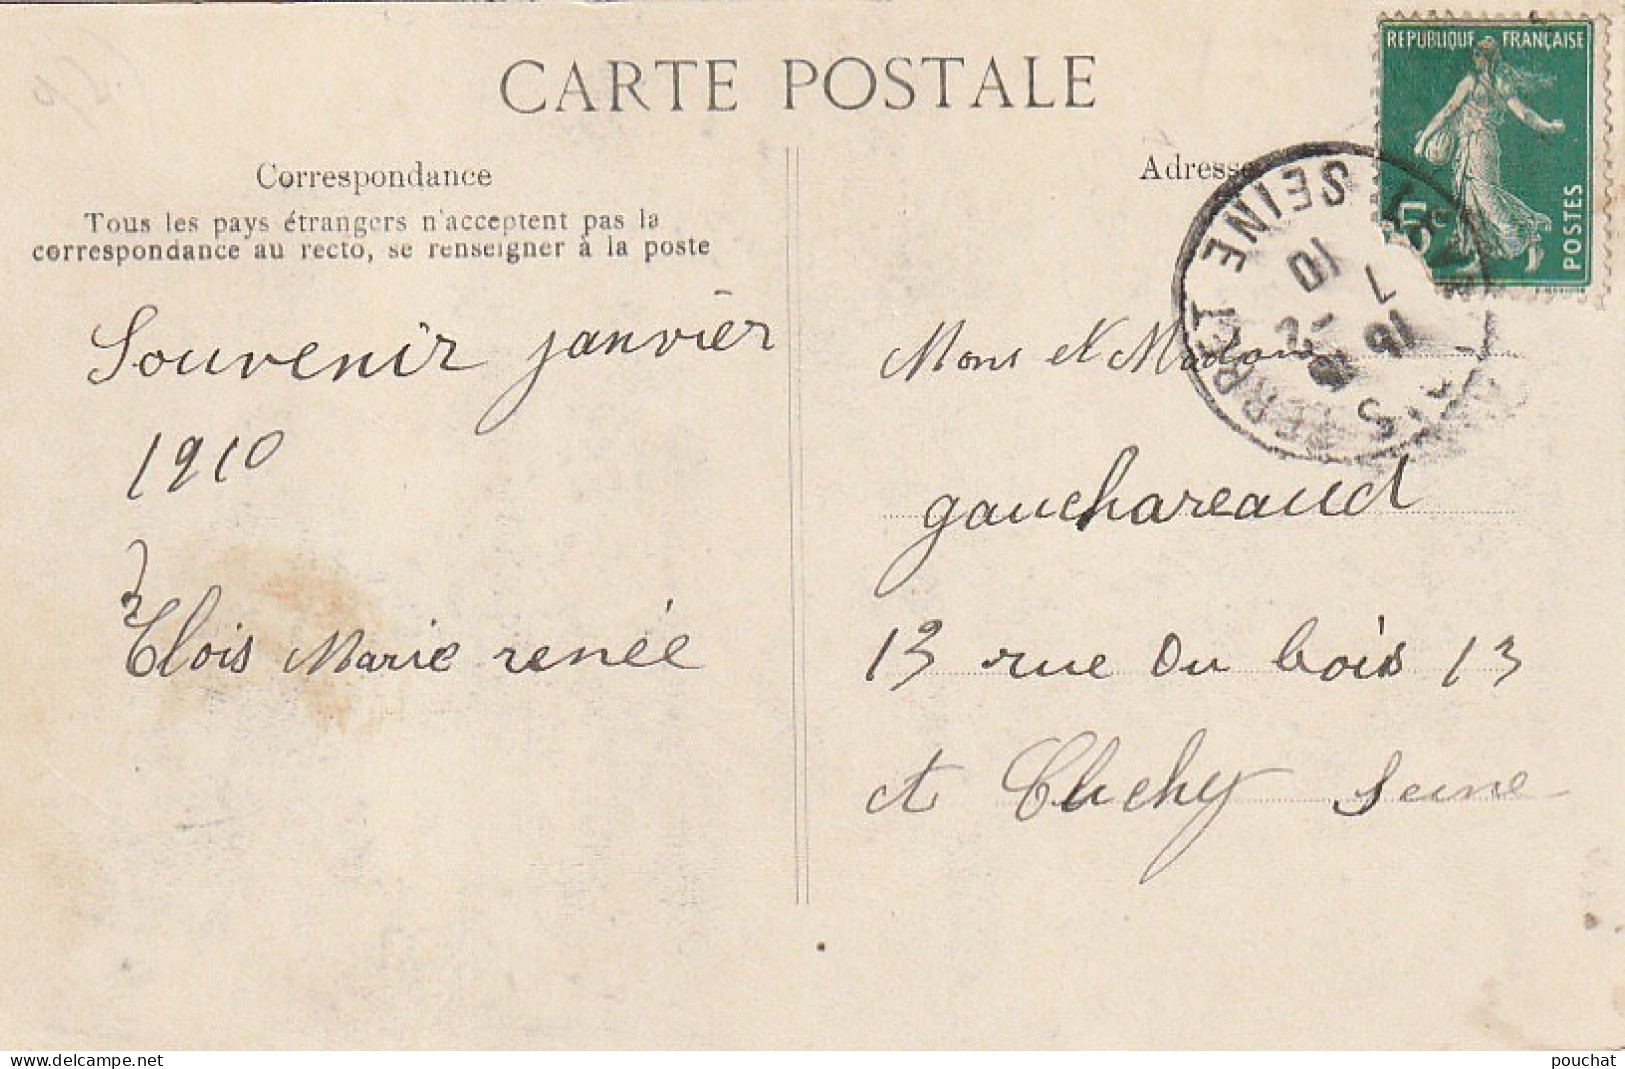 CARTE POSTALE
REPUBLIQUE FRANÇAISE
POSTES
Correspondance
Tous les pays étrangers n'acceptent pas la
correspondance au recto, se renseigner à la poste
Adresse
SEINE
Souvenir janvier
1910
Clois Marie renée
Mons et Madame
gauchareaud
13 rue Du bois 13
et Clichy Seine
delcampe.net
pouchat